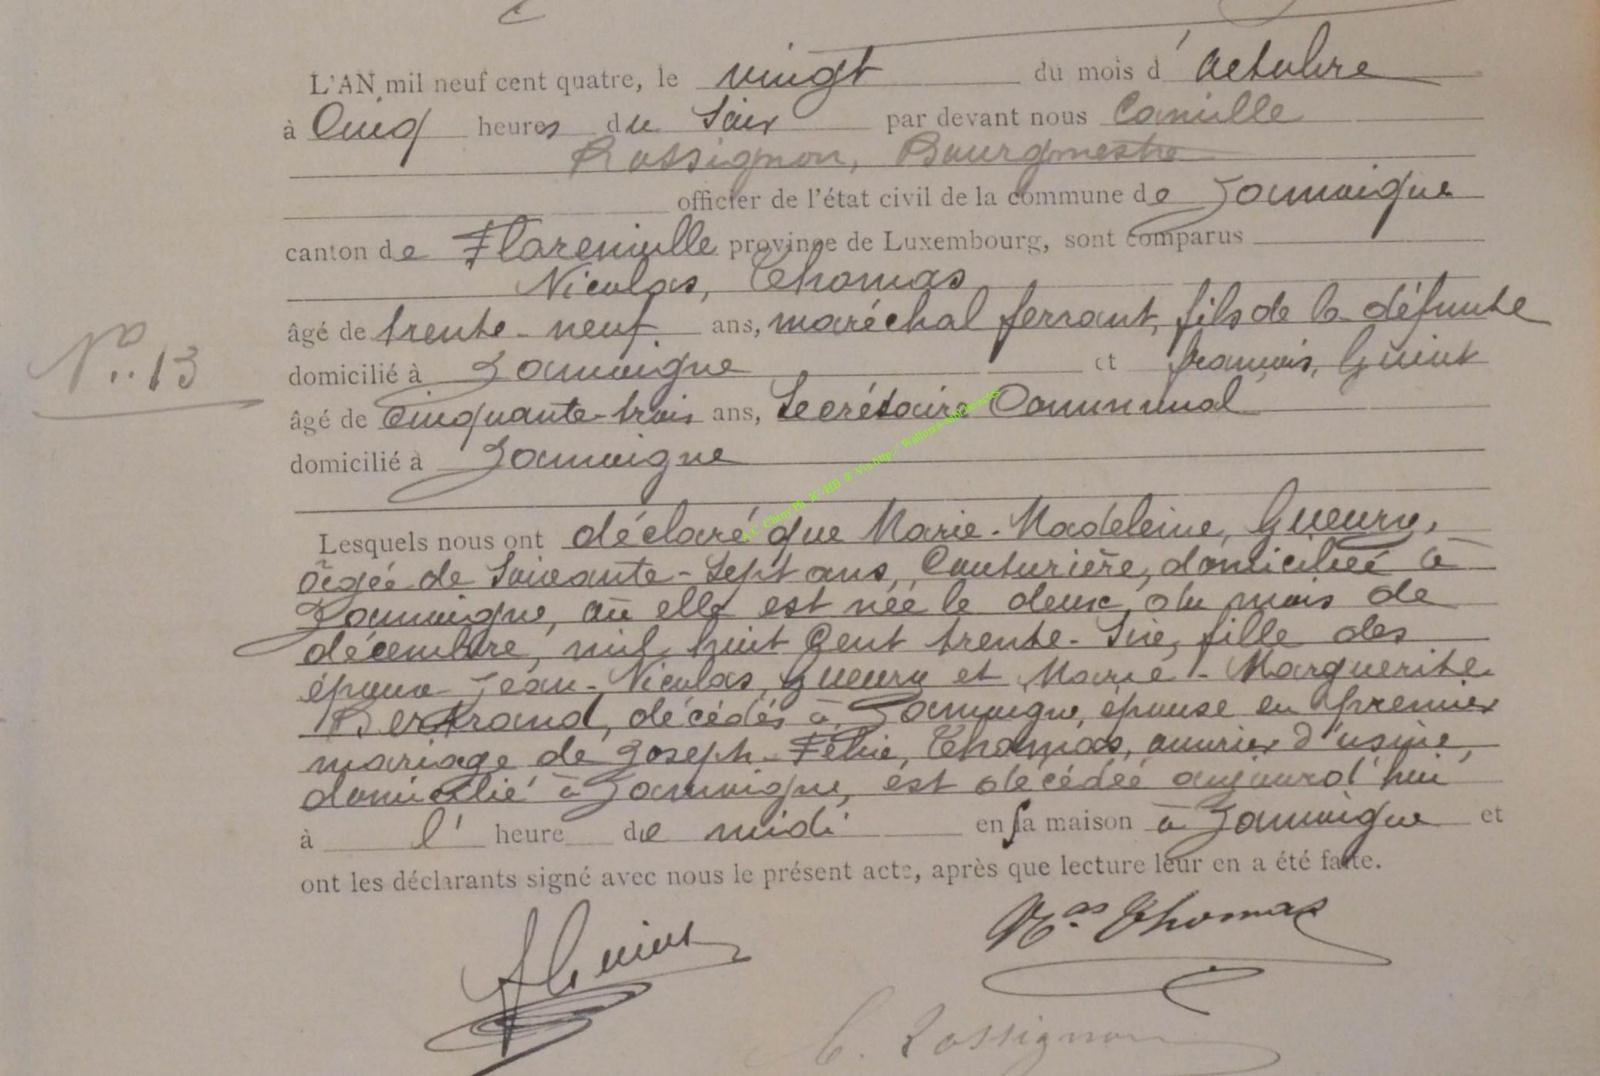 L'AN mil neuf cent quatre, le vingt du mois d'Octobre
à Cinq heures du Soir par devant nous Camille
Rossignon, Bourgmestre
officier de l'état civil de la commune de Jamoigne
canton de Florenville province de Luxembourg, sont comparus
Nicolas, Thomas
âgé de trente-neuf ans, maréchal ferrant, fils de la défunte
domicilié à Jamoigne et François, Guiot
N° 13
âgé de Cinquante-trois ans, Secrétaire Communal
domicilié à Jamoigne
Lesquels nous ont déclaré que Marie-Madeleine, Gueury,
âgée de Soixante-Sept ans, Couturière, domiciliée à
Jamoigne, où elle est née le deux, du mois de
décembre, mil huit Cent trente-Six, fille des
époux Jean-Nicolas, Gueury et Marie-Marguerite
Bertrand, décédés à Jamoigne, épouse en premier
mariage de Joseph-Félix, Thomas, ouvrier d'usine,
domicilié à Jamoigne, est décédée aujourd'hui
à l' heure de midi en sa maison à Jamoigne et
ont les déclarants signé avec nous le présent acte, après que lecture leur en a été faite.
F Guiot
Nas Thomas
C. Rossignon